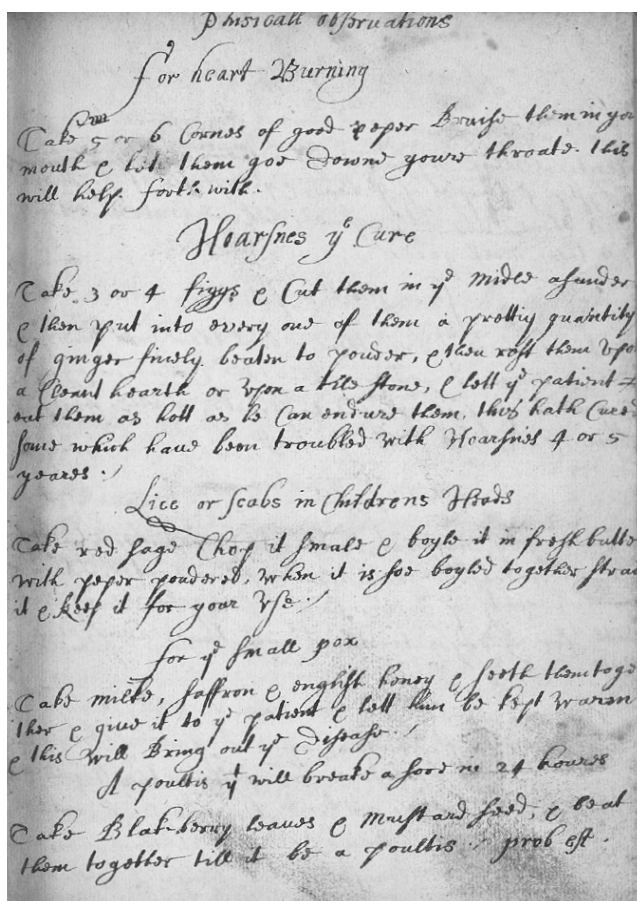 Phisicall observations
for heart Burning
Take 5 or 6 Cornes of good peper Bruise them in you
mouth & let them goe downe youre throate. this
will help forthwith.
Hoarsnes yᵉ Cure
Take 3 or 4 figgs & Cut them in yᵉ midle asunder
& then put into every one of them a pretty quantity
of ginger finely beaten to pouder, & then rost them vpo
a hearth or vpon a tile stone, & lett yᵉ patient
eat them as hott as he Can endure them, this hath Cured
some which have been troubled with Hoarsnes 4 or 5
yeares.
Lice or scabs in Childrens Heads
Take red sage Chop it smale & boyle it in fresh butte
with peper poudered, when it is soe boyled together strai
it & keep it for your Vse
for yᵉ small pox
Take milke, saffron & english honey & seeth them toge
ther & give it to yᵉ patient & lett him be kept warm
& this will Bring out yᵉ disease.
A poultis yᵗ will breake a sore in 24 houres
Take Blakberry leaves & Mustard seed, & beat
them together till it be a poultis. prob est.